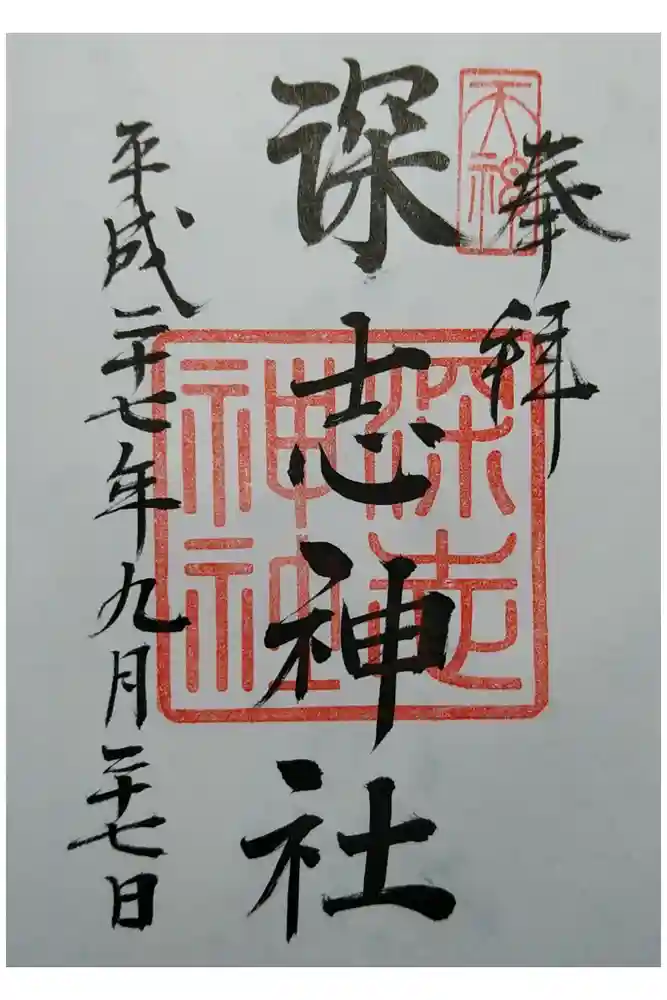 奉拝
天神
深志神社
深志神社
平成二十七年九月二十七日